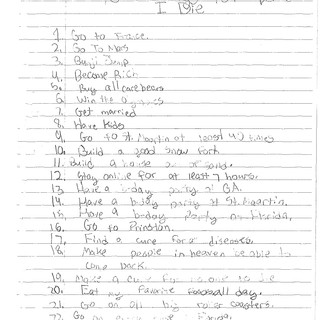 I Die
1. Go to France.
2. Go To Mars
3. Bunji Jump
4. Become Rich
5. Buy all care bears
6. Win the
7. Get married
8. Have Kids
9. Go to St. Martin at least 40 times
10. Build a good snow fort.
11. Build a house
12. Stay online for at least 7 hours.
13. Have a b-day party at GA.
14. Have a b-day party at St. Martin.
15. Have a b-day party in Florida.
16. Go to Princton.
17. Find a cure for a disease.
18. Make people in heaven be able to
come back.
19. Make a cure for no one to die
20. Eat my favorite food all day.
21. Go on all big roller coasters.
22. Go on every